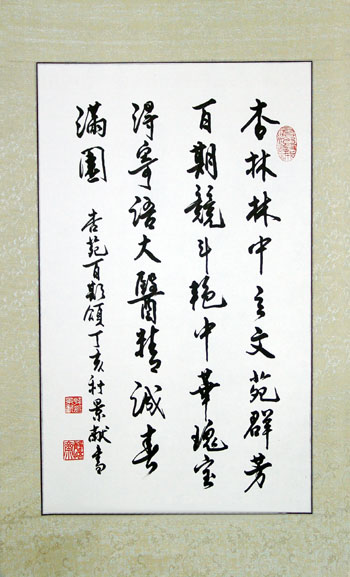 杏林林中立文苑群芳
百期競斗艳中華瑰宝
得寄語大醫精誠春
滿園
杏苑百期頌丁亥秋景献書